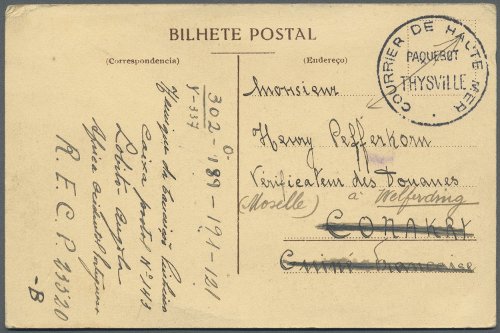 BILHETE POSTAL
(Correspondencia)
(Endereço)
COURRIER DE HAUTE MER
PAQUEBOT
THYSVILLE
Monsieur
Henry Pefferkorn
Vérificateur des Douanes
(Moselle) à Welferding
CONAKRY
Guiné Française
302-189-191-121
V-337
Henrique de
Caixa postal Nº 143
Lobito Angola
Africa Occidental Portuguesa
R.E.C.P. 23520
-B